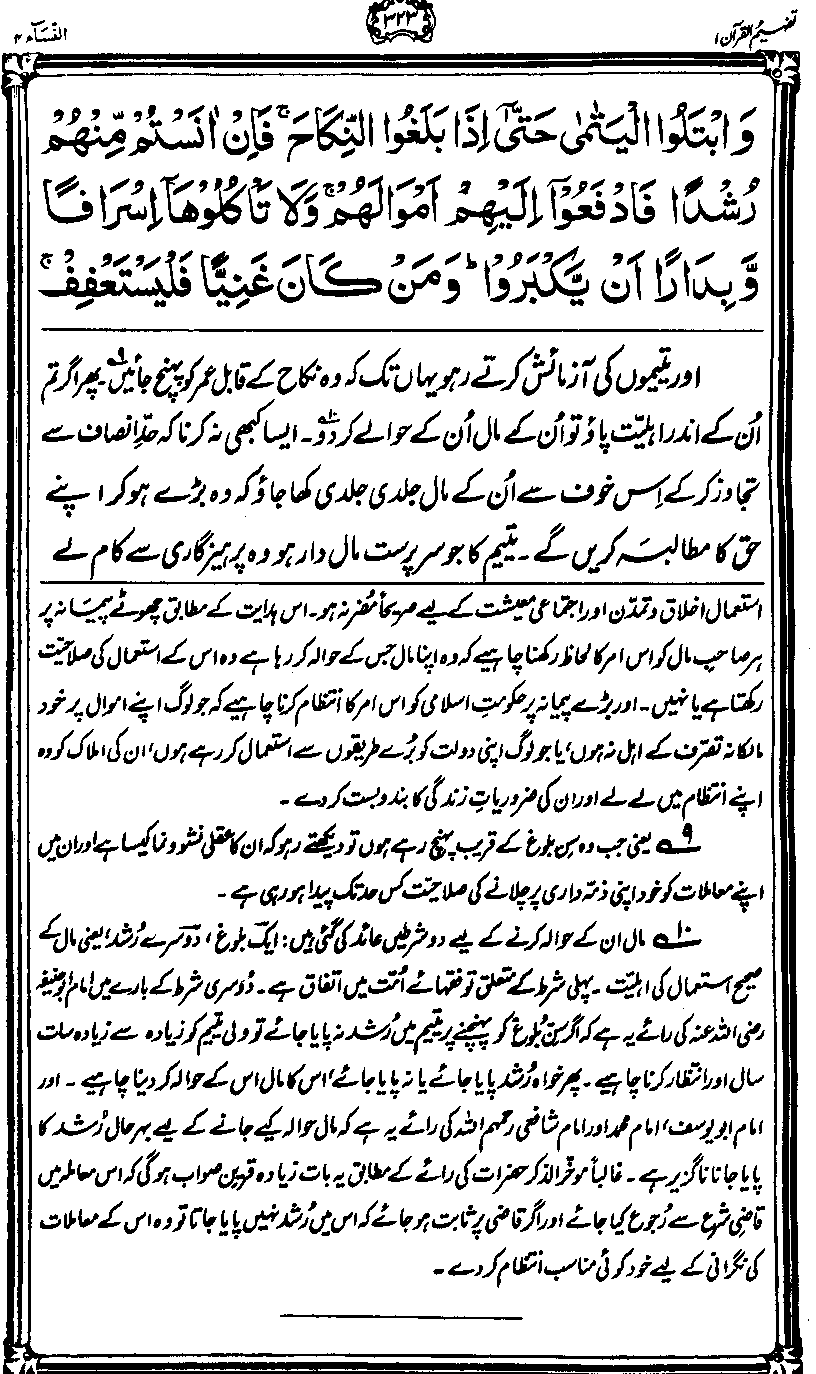 تفہیم القرآن ۱
۳۲۳
النسآء ۴
وَابْتَلُوا الْيَتٰمٰى حَتّٰىٓ اِذَا بَلَغُوا النِّكَاحَ ۚ فَاِنْ اٰنَسْتُمْ مِّنْهُمْ
رُشْدًا فَادْفَعُوْٓا اِلَيْهِمْ اَمْوَالَهُمْ ۚ وَلَا تَاْكُلُوْهَآ اِسْرَافًا
وَّبِدَارًا اَنْ يَّكْبَرُوْا ؕ وَمَنْ كَانَ غَنِيًّا فَلْيَسْتَعْفِفْ ۚ
اور یتیموں کی آزمائش کرتے رہو یہاں تک کہ وہ نکاح کے قابل عمر کو پہنچ جائیں۹۔ پھر اگر تم
اُن کے اندر اہلیّت پاؤ تو اُن کے مال اُن کے حوالے کر دو۱۰۔ ایسا کبھی نہ کرنا کہ حدِّ انصاف سے
تجاوز کر کے اِس خوف سے اُن کے مال جلدی جلدی کھا جاؤ کہ وہ بڑے ہو کر اپنے
حق کا مطالبہ کریں گے۔ یتیم کا جو سرپرست مال دار ہو وہ پرہیزگاری سے کام لے
استعمال اخلاق و تمدّن اور اجتماعی معیشت کے لیے صریحاً مُضر نہ ہو۔ اس ہدایت کے مطابق چھوٹے پیمانہ پر
ہر صاحبِ مال کو اس امر کا لحاظ رکھنا چاہیے کہ وہ اپنا مال جس کے حوالہ کر رہا ہے وہ اس کے استعمال کی صلاحیّت
رکھتا ہے یا نہیں۔ اور بڑے پیمانہ پر حکومتِ اسلامی کو اس امر کا انتظام کرنا چاہیے کہ جو لوگ اپنے اموال پر خود
مالکانہ تصّرف کے اہل نہ ہوں، یا جو لوگ اپنی دولت کو بُرے طریقوں سے استعمال کر رہے ہوں، ان کی املاک کو وہ
اپنے انتظام میں لے لے اور ان کی ضروریاتِ زندگی کا بندوبست کر دے۔
۹ یعنی جب وہ سِن بلوغ کے قریب پہنچ رہے ہوں تو دیکھتے رہو کہ ان کا عقلی نشوونما کیسا ہے اور ان میں
اپنے معاملات کو خود اپنی ذمّہ داری پر چلانے کی صلاحیّت کس حد تک پیدا ہو رہی ہے۔
۱۰ مال ان کے حوالہ کرنے کے لیے دو شرطیں عائد کی گئی ہیں: ایک بلوغ، دُوسرے رُشد، یعنی مال کے
صحیح استعمال کی اہلیّت۔ پہلی شرط کے متعلق تو فقہائے اُمّت میں اتفاق ہے۔ دُوسری شرط کے بارے میں امام ابو حنیفہ
رضی اللہ عنہ کی رائے یہ ہے کہ اگر سِنِّ بُلوغ کو پہنچنے پر یتیم میں رُشد نہ پایا جائے تو ولی یتیم کو زیادہ سے زیادہ سات
سال اور انتظار کرنا چاہیے۔ پھر خواہ رُشد پایا جائے یا نہ پایا جائے، اس کا مال اس کے حوالہ کر دینا چاہیے۔ اور
امام ابو یوسف، امام محمد اور امام شافعی رحمہم اللہ کی رائے یہ ہے کہ مال حوالہ کیے جانے کے لیے بہر حال رُشد کا
پایا جانا ناگزیر ہے۔ غالباً موخّر الذکر حضرات کی رائے کے مطابق یہ بات زیادہ قرینِ صواب ہوگی کہ اس معاملہ میں
قاضیِ شرع سے رُجوع کیا جائے اور اگر قاضی پر ثابت ہو جائے کہ اس میں رُشد نہیں پایا جاتا تو وہ اس کے معاملات
کی نگرانی کے لیے خود کوئی مناسب انتظام کر دے۔